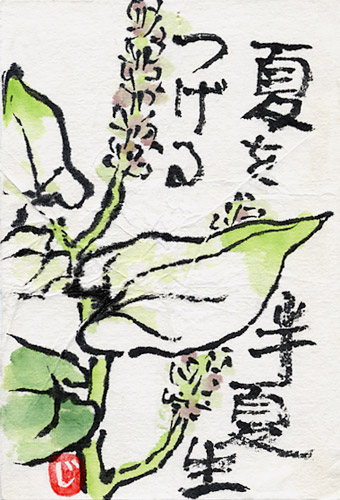 夏を
つげる
半夏生
じ